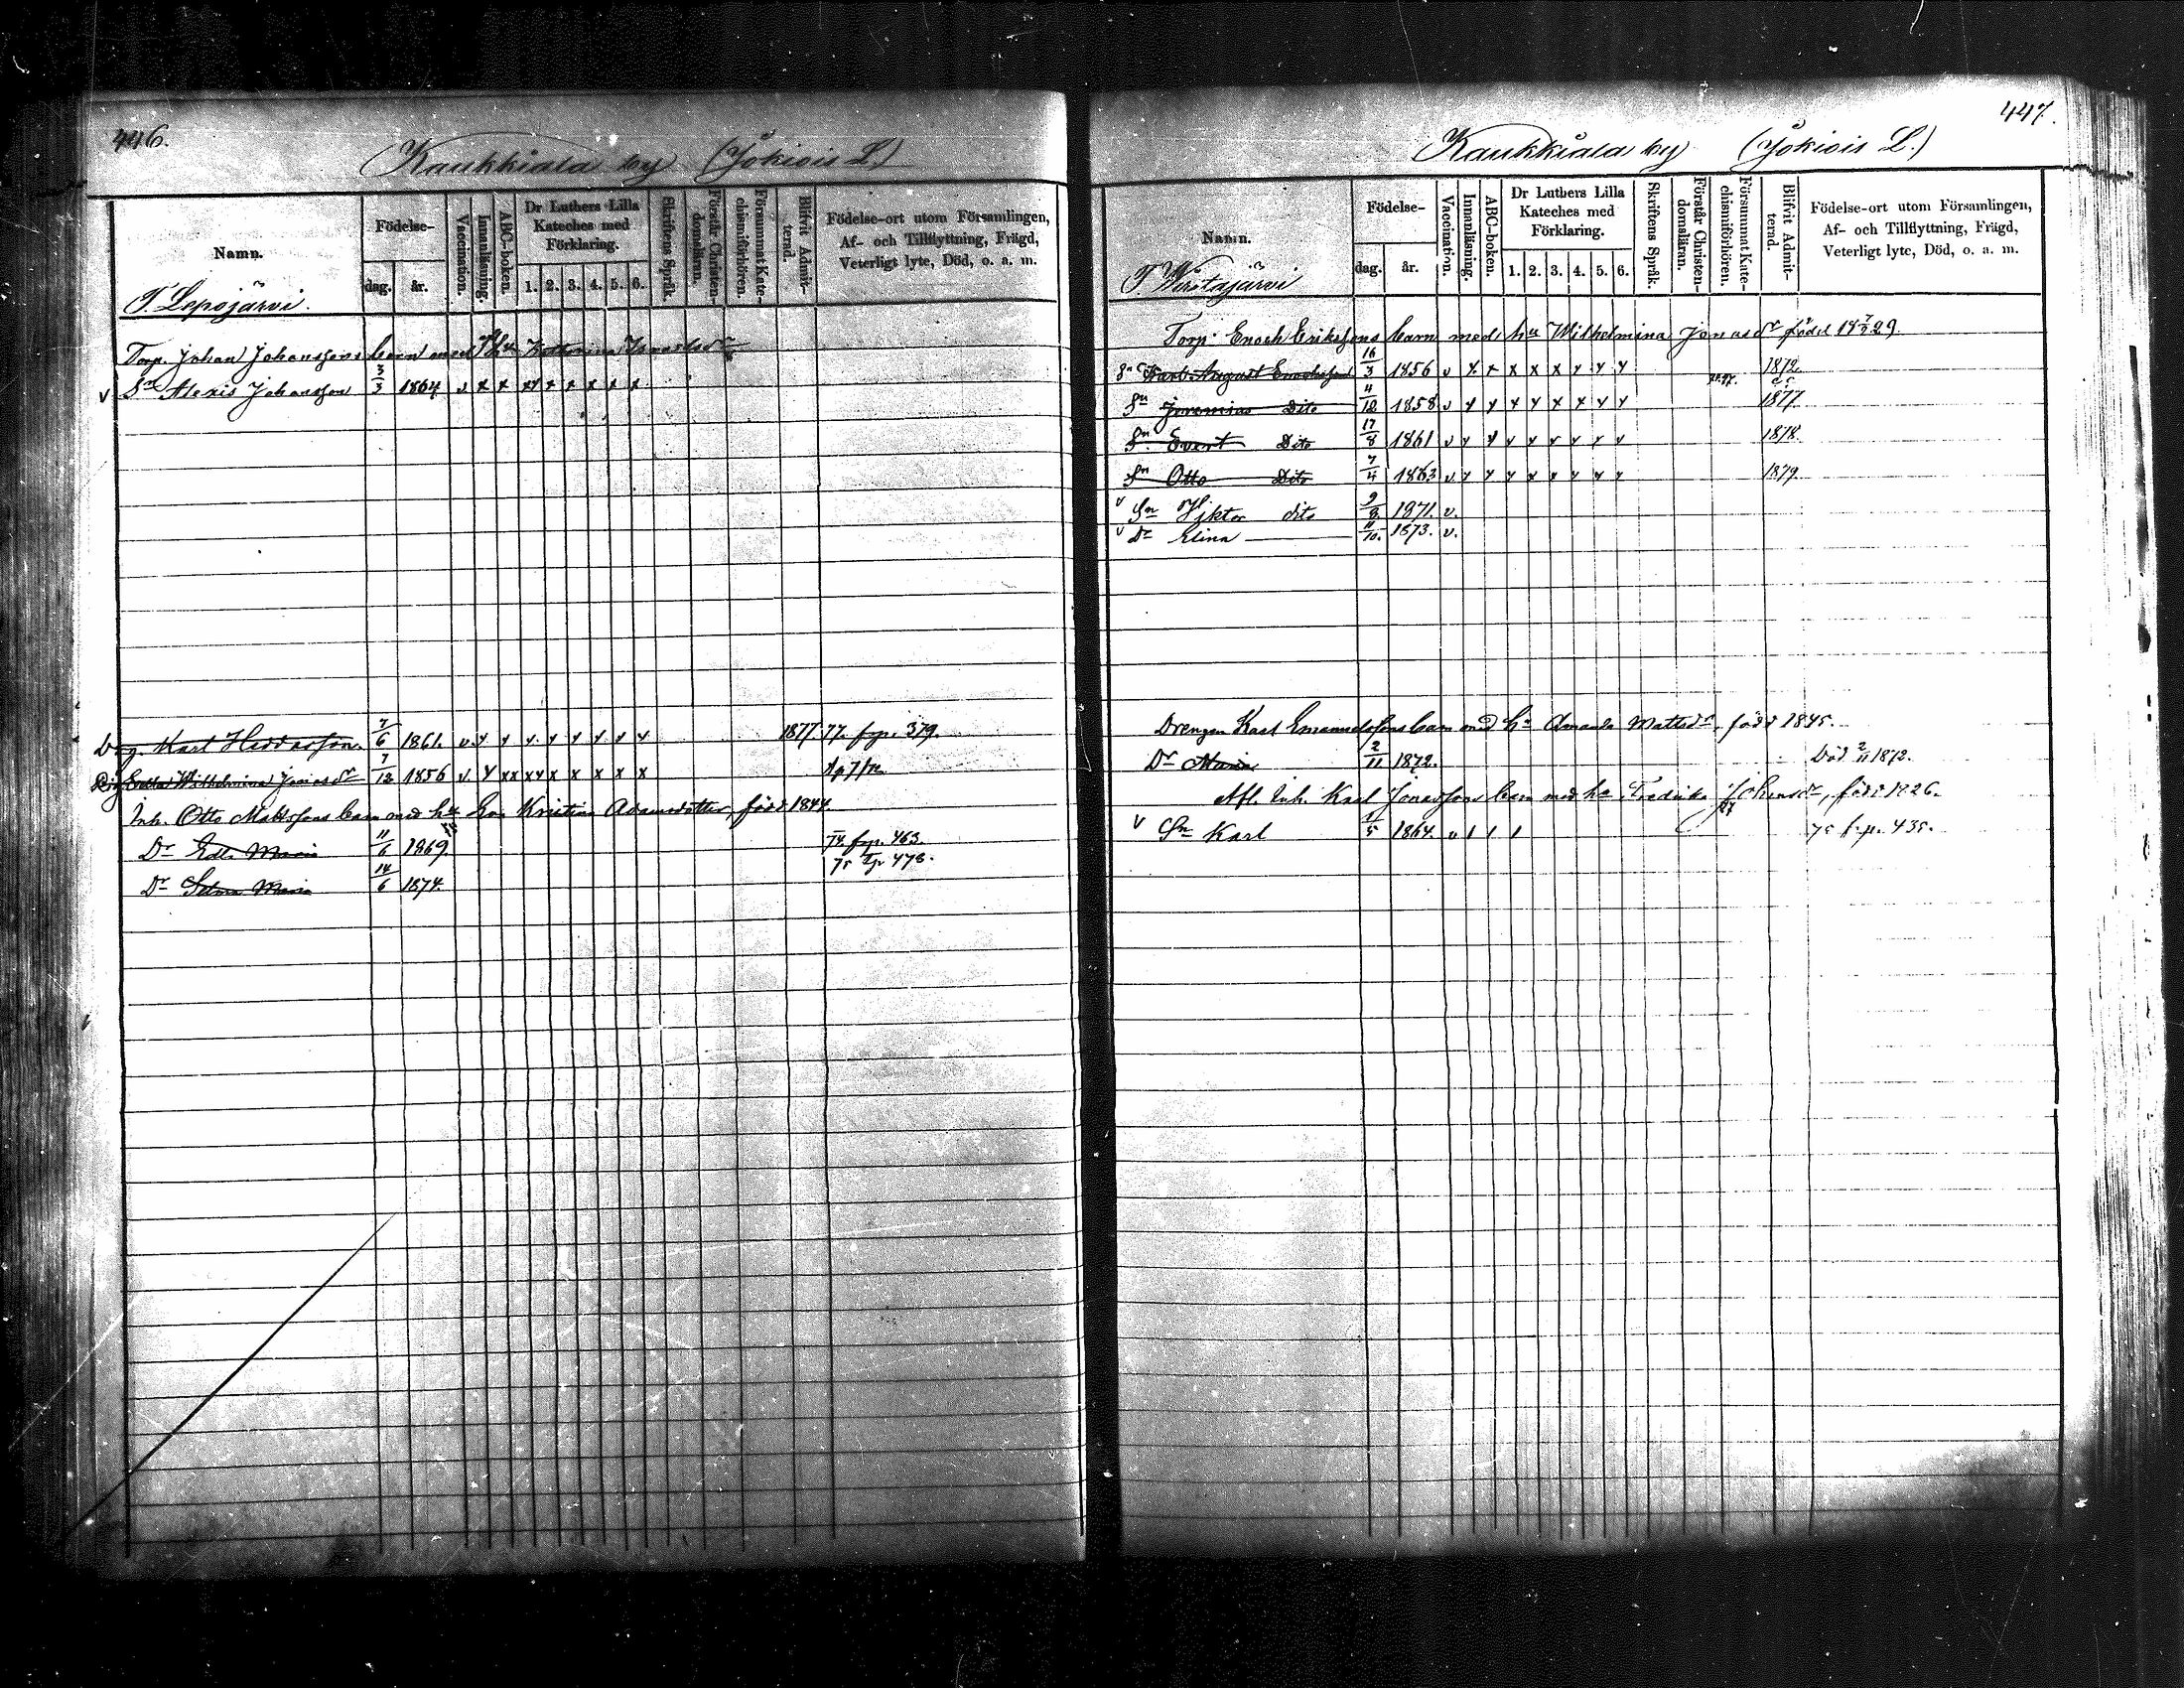 446.
Kaukkiala by (Jokiois L.)
Namn.
Födelse-
dag.
år.
Vaccination.
Innanläsning.
ABC-boken.
Dr Luthers Lilla
Kateches med
Förklaring.
1. 2. 3. 4. 5. 6.
Skriftens Språk.
Förstår Christen-
domsläran.
Försummat Kate-
chismiförhören.
Blifvit Admit-
terad.
Födelse-ort utom Församlingen,
Af- och Tillflyttning, Frägd,
Veterligt lyte, Död, o. a. m.
T. Lepojärvi.
Torp. Johan Johanssons barn med
v Sn Alexis Johansson 3/3 1864 v x x x x x x x x
Drg. Karl 7/6 1861. v. y y v. y y y y y 1877. 77. frp. 379.
Pig. Wilhelmina Jonasdr 7/12 1856 v. y xx xy x x x x x
Inh. Otto Mattssons barn med hu Kristina Adamsdotter, född 1844
Dr Edla Maria 11/6 1869. 74 frp. 463.
75 478.
Dr Selma Maria 14/6 1874.
447.
Kaukkiala by (Jokiois L.)
Namn.
Födelse-
dag.
år.
Vaccination.
Innanläsning.
ABC-boken.
Dr Luthers Lilla
Kateches med
Förklaring.
1. 2. 3. 4. 5. 6.
Skriftens Språk.
Förstår Christen-
domsläran.
Försummat Kate-
chismiförhören.
Blifvit Admit-
terad.
Födelse-ort utom Församlingen,
Af- och Tillflyttning, Frägd,
Veterligt lyte, Död, o. a. m.
T. Wirstajärvi
Torp. Enoch Erikssons barn med hu Wilhelmina Jonasdr född 18 7/2 29.
Sn Karl August Enochsson 16/3 1856 v y. x x x x y y y 1872.
Sn Jeremias Dito 4/12 1858 v y y y y x x y y 1877.
Sn Evert Dito 17/8 1861 v y y v x v x y v 1878.
Sn Otto Dito 7/4 1863 v y y y x x y y y 1879.
v Sn Viktor dito 9/8. 1871. v.
v Dr Elina 11/10. 1873. v.
Drengen Karl Emanuelssons barn med hu Amanda Mattsdr, född 1845.
Dr Maria 2/11 1872. Död 2/11 1872.
Afl. Inh. Karl Jonassons barn med hu Fredrika Johansdr, född 1826.
v Sn Karl 1/5 1864. v 1 1 1 75 frp. 435.